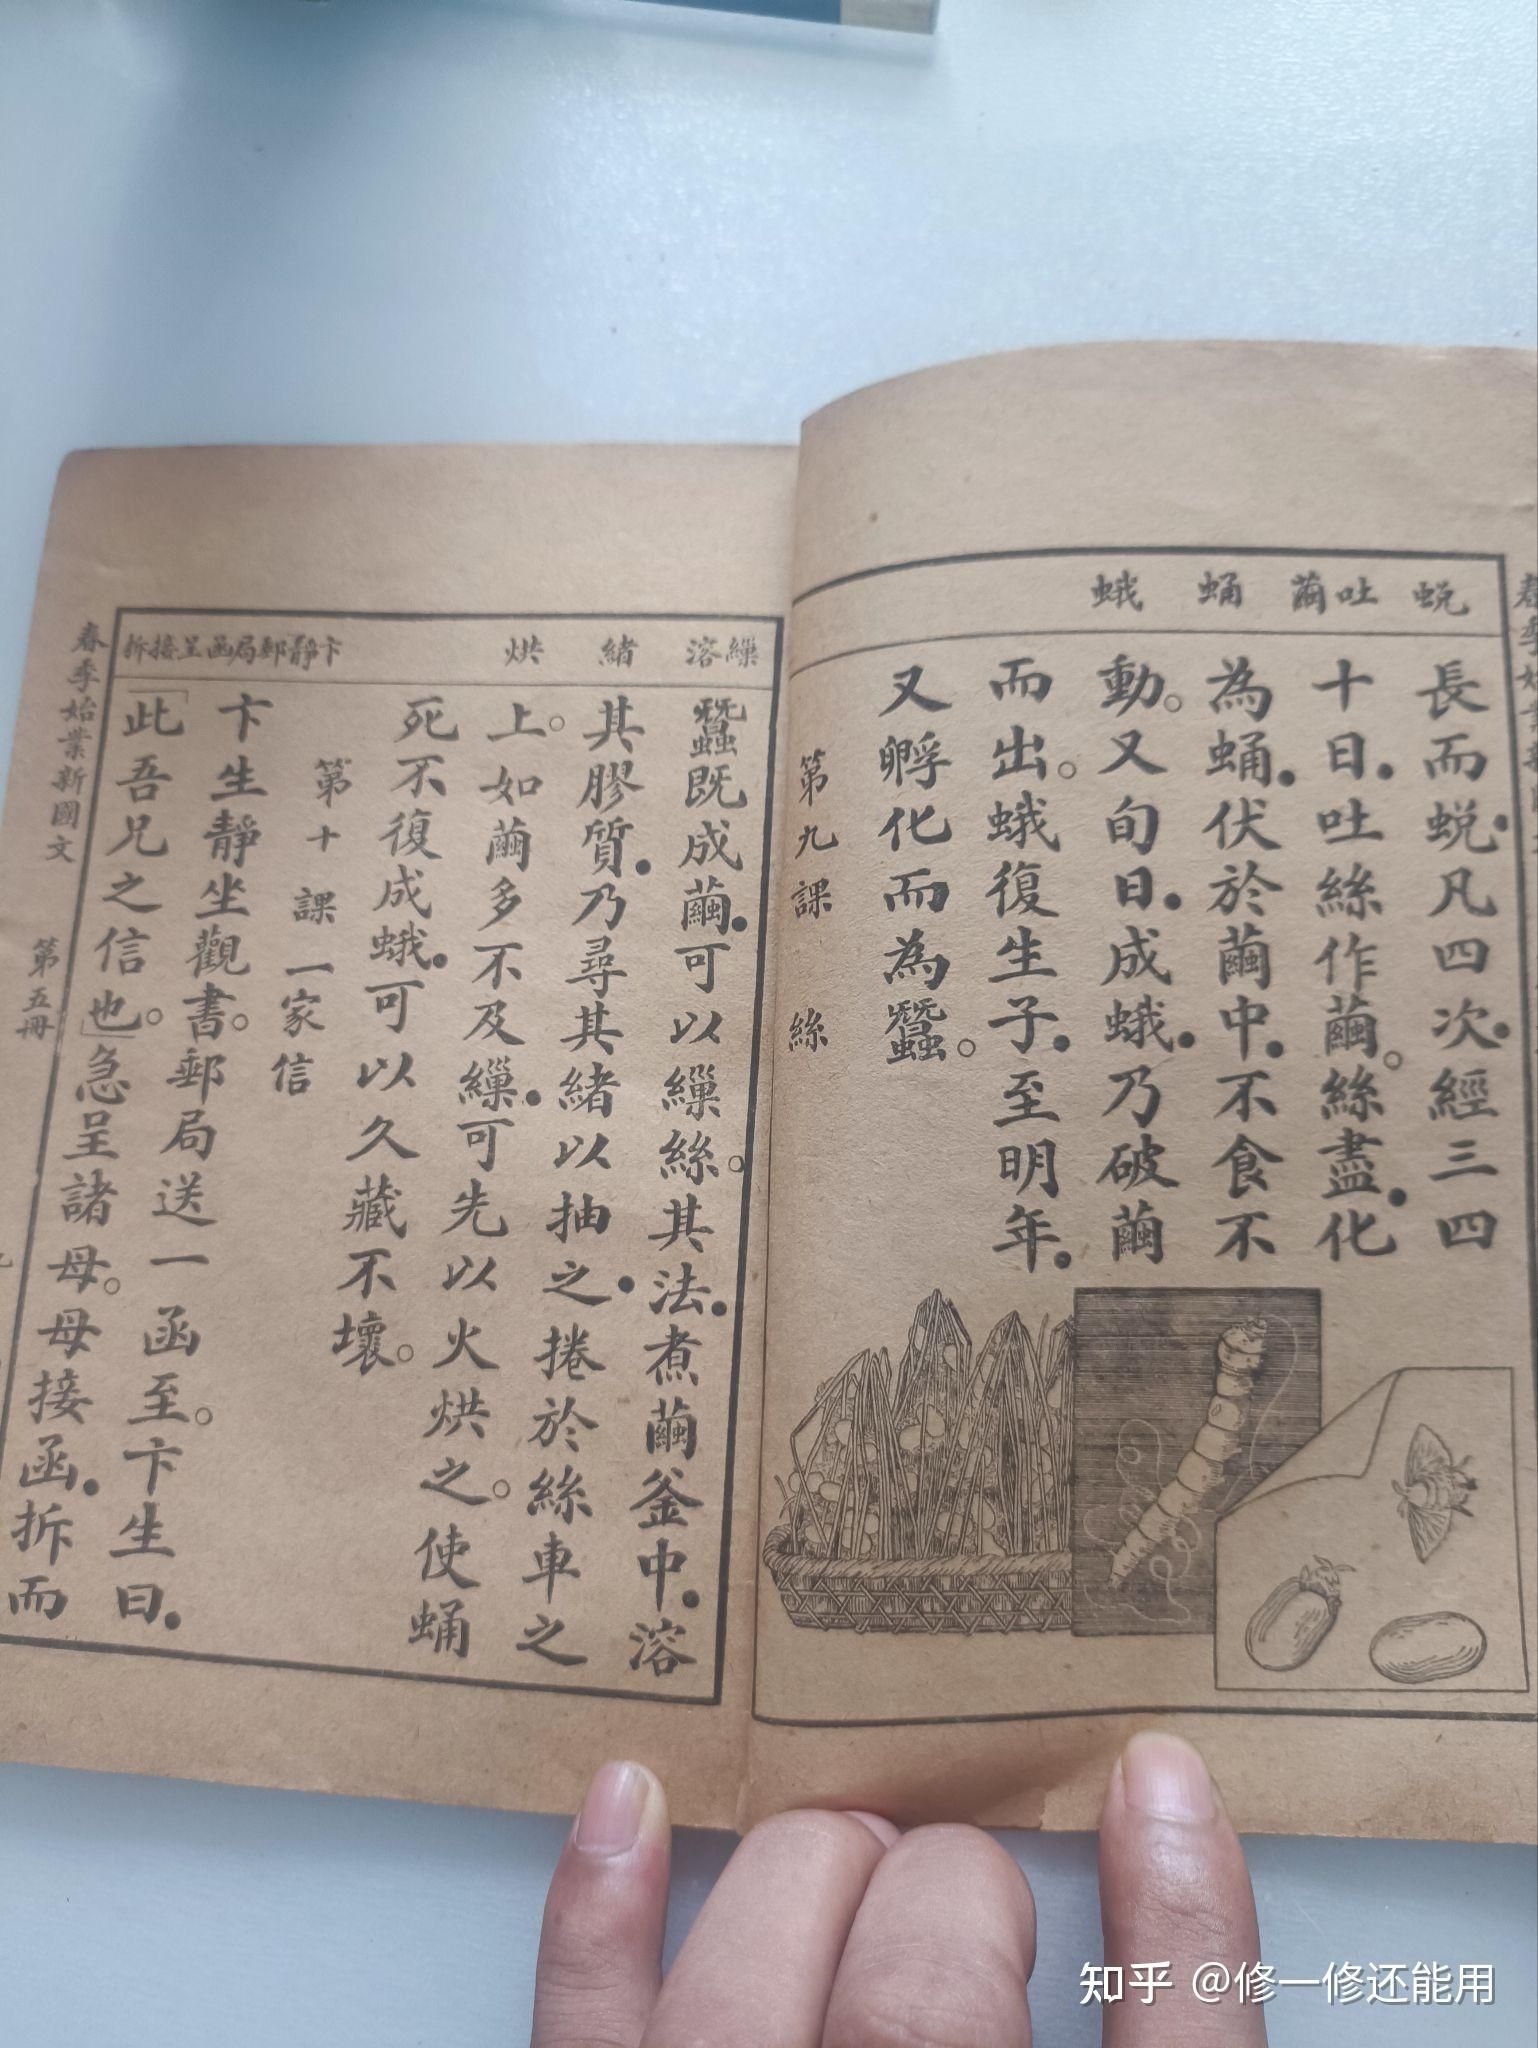 蛻 吐繭 蛹 蛾
長而蛻．凡四次．經三四
十日．吐絲作繭。絲盡．化
為蛹．伏於繭中．不食不
動。又旬日．成蛾．乃破繭
而出。蛾復生子．至明年．
又孵化而為蠶。
第九課 絲
繅溶 緒 烘 卞靜郵局函呈接拆
蠶既成繭．可以繅絲。其法．煮繭釜中．溶
其膠質．乃尋其緒以抽之．捲於絲車之
上。如繭多不及繅．可先以火烘之。使蛹
死不復成蛾．可以久藏不壞。
第十課 一家信
卞生靜坐觀書。郵局送一函至。卞生曰．
「此吾兄之信也」。急呈諸母。母接函．拆而
春季始業新國文 第五冊
知乎 @修一修还能用